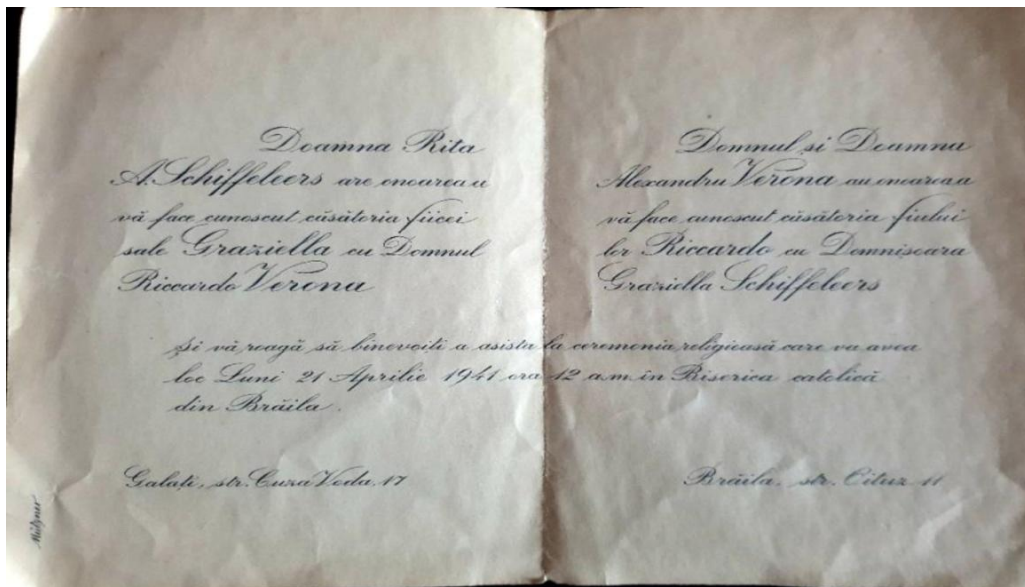 Doamna Rita
A. Schiffeleers are onoarea a
vă face cunoscut căsătoria fiicei
sale Graziella cu Domnul
Riccardo Verona
Domnul și Doamna
Alexandru Verona au onoarea a
vă face cunoscut căsătoria fiului
lor Riccardo cu Domnișoara
Graziella Schiffeleers
și vă roagă să binevoiți a asista la ceremonia religioasă care va avea
loc Luni 21 Aprilie 1941 ora 12 a.m. în Biserica catolică
din Brăila.
Galați, str. Cuza Voda 17
Brăila, str. Cituz 11